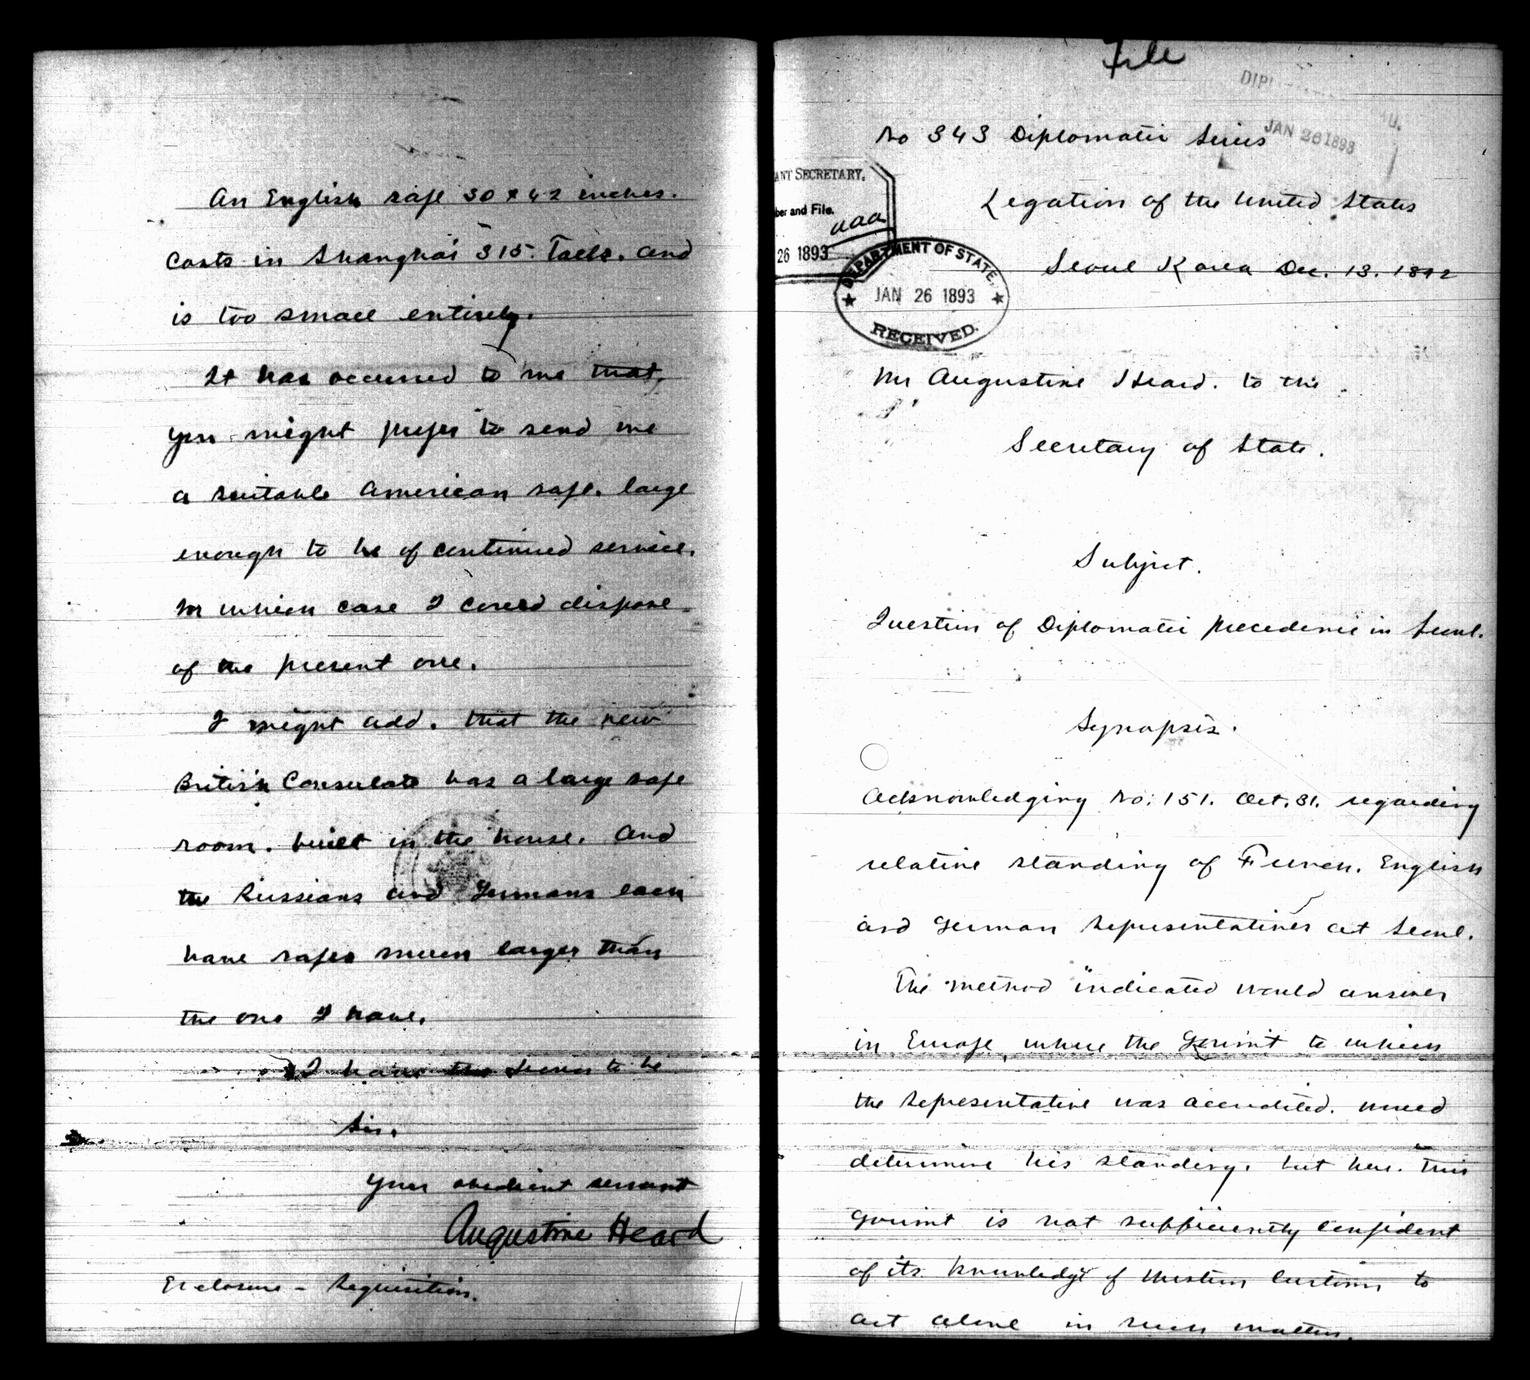 An English safe 30 x 42 inches.
costs in Shanghai 315. Taels. and
is too small entirely.
It has occurred to me that,
you might prefer to send me
a suitable American safe. large
enough to be of continued service.
in which case I could dispose
of the present one.
I might add. that the new
British Consulate has a large safe
room. built in the house. and
the Russians and Germans each
have safes much larger than
the one I have.
I have the honor to be
Sir.
your obedient servant
Augustine Heard
Enclosure - Requisition.
File
DIPL
JAN 26 1893
No 343 Diplomatic Series
ANT SECRETARY,
ber and File.
26 1893
Legation of the United States
DEPARTMENT OF STATE,
JAN 26 1893
RECEIVED.
Seoul Korea Dec. 13. 1892
Mr Augustine Heard. to the
Secretary of State.
Subject.
Question of Diplomatic precedence in Seoul.
Synopsis.
Acknowledging No. 151. Oct. 31. regarding
relative standing of French. English
and German Representatives at Seoul.
The method indicated would answer
in Europe, where the Govmnt to which
the Representative was accredited. would
determine his standing, but here. this
Govmnt is not sufficiently confident
of its knowledge of Western Customs to
act alone in such matters.